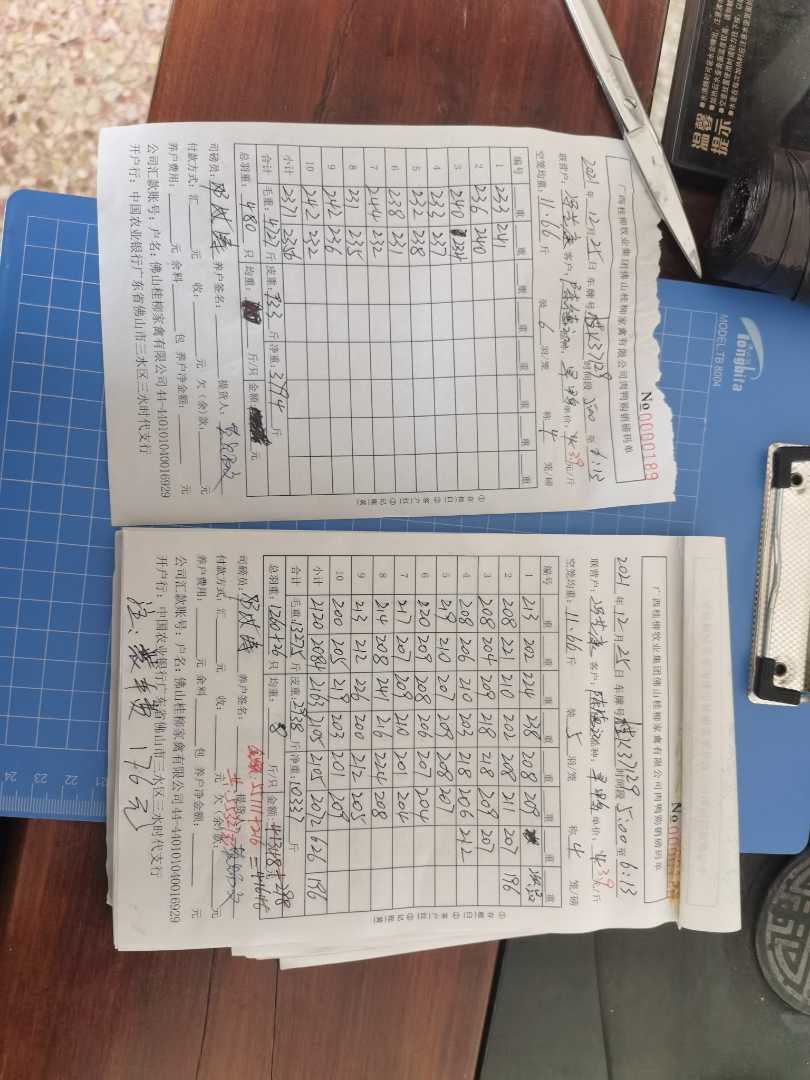 广西桂柳牧业集团佛山桂柳家禽有限公司肉鸭购销磅码单
No 0000189
2021 年 12 月 25 日 车牌号 桂K37129 时间段 5:00 至 6:13
联营户: 客户: 品种: 单价: 4.39 元/斤
空笼均重: 11.66 斤 装 6 羽/笼 称 4 笼/磅
编号 重 重 重 重 重 重 重
1 233 241
2 236 240
3 240 234
4 233 237
5 232 238
6 238 231
7 244 232
8 231 235
9 242 236
10 242 232
小计 2371 2356
合计 毛重: 4727 斤 皮重: 933 斤 净重: 3794 斤
总羽重: 480 只 均重: 斤/只 金额: 元
司磅员: 养户签名: 提货人:
付款方式: 汇 元 收: 元 欠(余)款: 元
养户费用: 元 余料 包 养户净金额: 元
公司汇款账号: 户名: 佛山桂柳家禽有限公司 44-440101040016929
开户行: 中国农业银行广东省佛山市三水区三水时代支行
①存根:白 ②客户:红 ③记账:黄
广西桂柳牧业集团佛山桂柳家禽有限公司肉鸭购销磅码单
2021 年 12 月 25 日 车牌号 桂K37129 时间段 5:00 至 6:13
联营户: 客户: 品种: 单价: 4.39 元/斤
空笼均重: 11.66 斤 装 5 羽/笼 称 4 笼/磅
编号 重 重 重 重 重 重 重
1 213 202 224 238 208 209
2 208 221 210 202 208 211 207 196
3 208 204 209 218 218 209 207
4 208 206 210 203 218 206 212
5 219 210 207 209 208 207
6 220 209 208 206 207 204
7 217 207 209 210 201 204
8 214 208 241 216 224 208
9 213 212 226 200 212 205
10 200 205 219 203 201 209
小计 2120 2084 2163 2105 2105 2072 626 196
合计 毛重: 13275 斤 皮重: 2938 斤 净重: 10337 斤
总羽重: 1260+26 只 均重: 8 斤/只 金额:
司磅员: 养户签名:
付款方式: 汇 元 收: 元 欠(余)款: 元
养户费用: 元 余料 包 养户净金额: 元
公司汇款账号: 户名: 佛山桂柳家禽有限公司 44-440101040016929
开户行: 中国农业银行广东省佛山市三水区三水时代支行
注: 装车费 176 元
①存根:白 ②客户:红 ③记账:黄
longbita
MODEL TB 8004
温馨提示
24 23 22 21